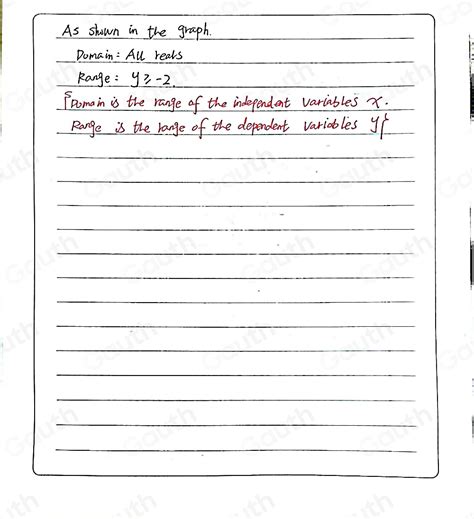 As shown in the graph.
Domain: All reals
Range: y ≥ -2.
{Domain is the range of the independent variables x.
Range is the range of the dependent variables y}
Gauth